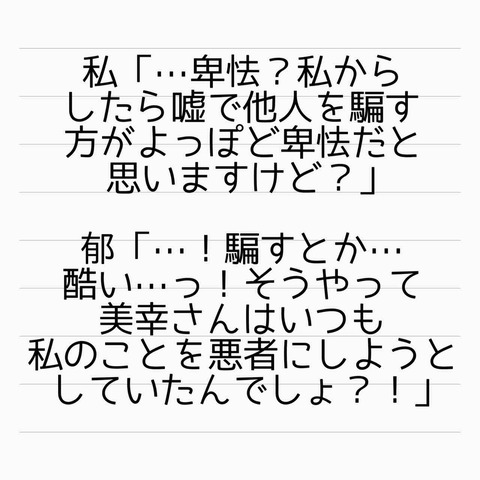 私「…卑怯？私から
したら嘘で他人を騙す
方がよっぽど卑怯だと
思いますけど？」
郁「…！騙すとか…
酷い…っ！そうやって
美幸さんはいつも
私のことを悪者にしようと
していたんでしょ？！」